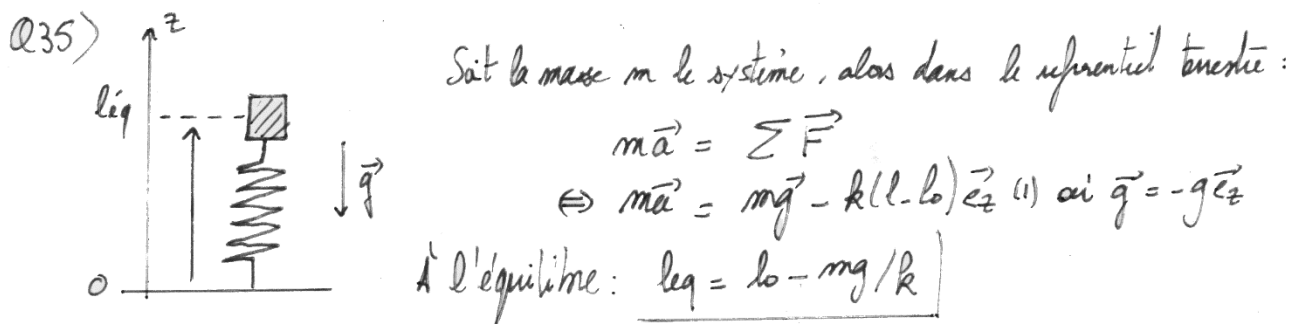 Q35)
z
Soit la masse m le système, alors dans le referentiel terrestre :
léq
m\vec{a} = Σ \vec{F}
\vec{g}
⇔ m\vec{a} = m\vec{g} - k(l-l0) \vec{e_z} (1) où \vec{g} = -g\vec{e_z}
0
À l'équilibre : leq = l0 - mg/k